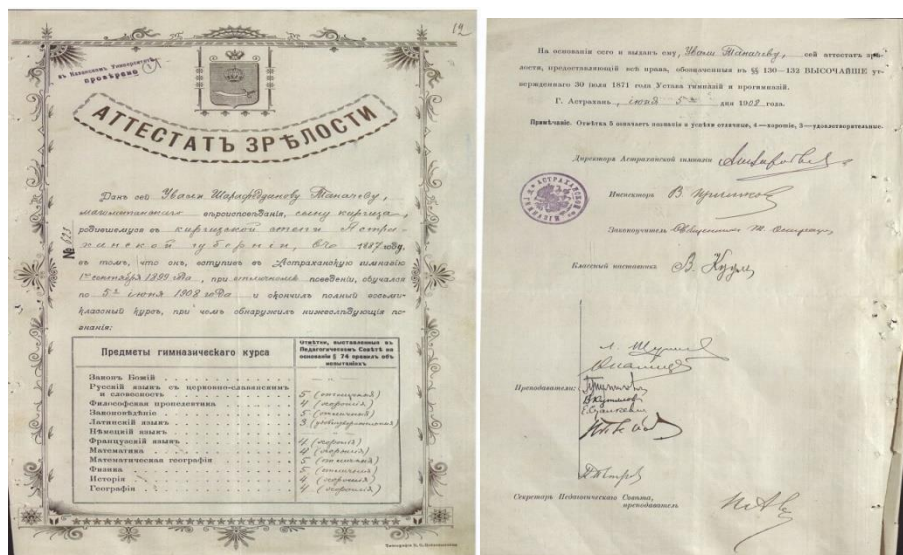 12
въ Казанскомъ Университетѣ
провѣрено
АТТЕСТАТЪ ЗРѢЛОСТИ
Данъ сей Ували Шарафудинову Таначеву,
магометанскаго вѣроисповѣданія, сыну киргиза,
родившемуся въ киргизской степи Астра-
ханской губерніи, въ 1887 году,
въ томъ, что онъ, вступивъ въ Астраханскую гимназію
1го сентября 1899 года, при отличномъ поведеніи, обучался
по 5е іюня 1908 года и окончилъ полный восьми-
классный курсъ, при чемъ обнаружилъ нижеслѣдующія по-
знанія:
№ 623
Предметы гимназическаго курса
Отмѣтки, выставленныя въ
Педагогическомъ Совѣтѣ на
основаніи § 74 правилъ объ
испытаніяхъ
Законъ Божій
Русскій языкъ съ церковно-славянскимъ
и словесность 5 (отличная)
Философская пропедевтика 4 (хорошія)
Законовѣдѣніе 5 (отличныя)
Латинскій языкъ 3 (удовлетворительныя)
Нѣмецкій языкъ
Французскій языкъ 4 (хорошія)
Математика 4 (хорошія)
Математическая географія 5 (отличныя)
Физика 5 (отличныя)
Исторія 4 (хорошія)
Географія 4 (хорошія)
На основаніи сего и выданъ ему, Ували Таначеву, сей аттестатъ зрѣ-
лости, предоставляющій всѣ права, обозначенныя въ §§ 130—132 ВЫСОЧАЙШЕ ут-
вержденнаго 30 іюля 1871 года Устава гимназій и прогимназій.
Г. Астрахань, іюня 5го дня 1908 года.
Примѣчаніе. Отмѣтка 5 означаетъ познанія и успѣхи отличные, 4—хорошіе, 3—удовлетворительные.
Директоръ Астраханской гимназіи
Инспекторъ
Законоучитель
Классный наставникъ В.
Преподаватели:
Секретарь Педагогическаго Совѣта,
преподаватель